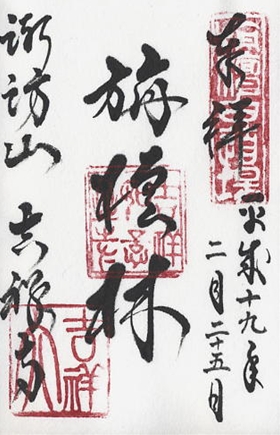 奉拝
平成十九年
二月二十五日
旃檀林
諏訪山 吉祥寺